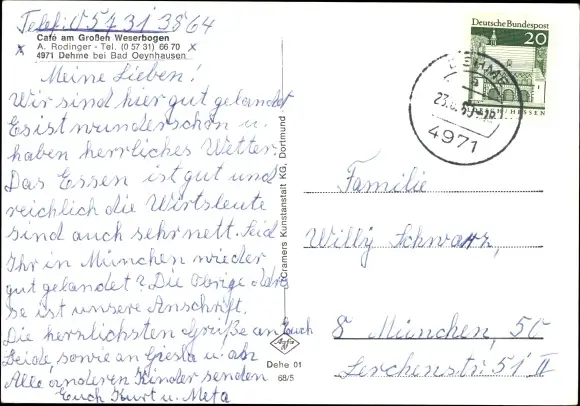 Telef. 05731 3864
Café am Großen Weserbogen
A. Rodinger - Tel. (0 57 31) 66 70
4971 Dehme bei Bad Oeynhausen
Meine Lieben!
Wir sind hier gut gelandet
Es ist wunderschön u.
haben herrliches Wetter.
Das Essen ist gut und
reichlich die Wirtsleute
sind auch sehr nett. Seid
Ihr in München wieder
gut gelandet? Die Obrige Adres
se ist unsere Anschrift.
Die herzlichsten Grüße an Euch
Beide, sowie an Gresta u. an
Alle anderen Kinder senden
Euch Kurt u. Meta
Cramers Kunstanstalt KG, Dortmund
Agfa
Dehe 01
68/5
Deutsche Bundespost
20
LORSCH/HESSEN
DEHME
4971
Familie
Willy Schwarz,
8 München, 50
Lerchenstr. 51 II